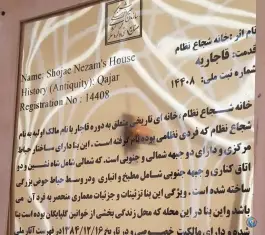 نام اثر: خانه شجاع نظام
قدمت: قاجاریه
شماره ثبت ملی: ۱۴۴۰۸
Name: Shojae Nezam's House
History (Antiquity): Qajar
Registration No : 14408
خانه شجاع نظام، خانه ای تاریخی متعلق به دوره قاجار با نام مالک اولیه به نام
شجاع نظام که فردی نظامی بوده نام گرفته است. این بنا دارای ساختار حیاط
مرکزی و دارای دو جبهه شمالی و جنوبی است. که شمالی شامل شاه نشین و دو
اتاق کناری و جبهه جنوبی شامل مطبخ و انباری ودر وسط حیاط حوض بزرگی
ساخته شده است. ویژگی این بنا تزئینات و جزئیات معماری منحصر به فرد آن می
باشد واین بنا در این محله که محل زندگی بخشی از خوانین گلپایگان بوده است بنا
شده و دارای مالکیت خصوصی در تاریخ ۱۳۸۴/۱۲/۱۶ در فهرست آثار ملی